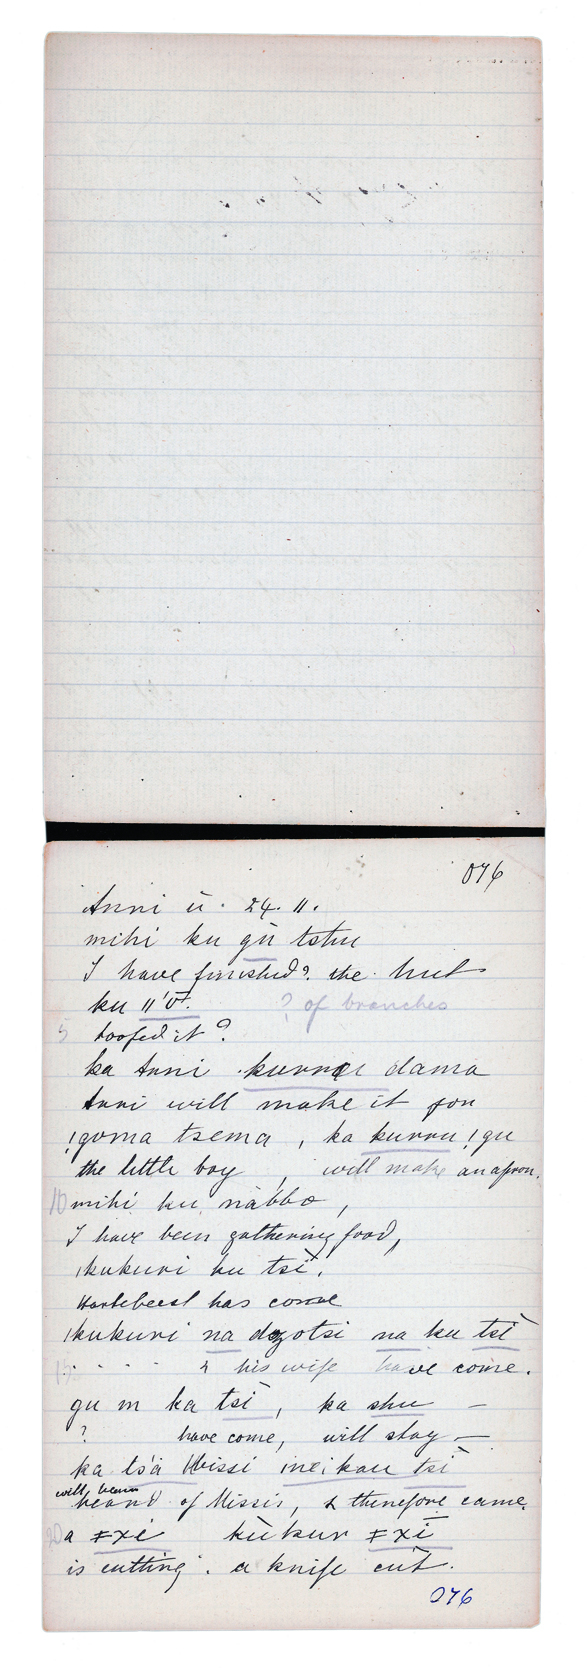 076
Anni ū. 24. 11.
mihi ku gū tshu
I have finished? the hut
ku ǁ'ō.
? of branches
5
roofed it?
ka Anni kurru dama
Anni will make it for
!goma tsema, ka kurru !gu
the little boy, will make an apron.
10 mihi ku nàbbo,
I have been gathering food,
ǀkukuri ku tsī.
Hartebeest has come
ǀkukuri na dzotsi na ku tsī
15 . . . . & his wife have come.
gu m ka tsī, ka shu –
? have come, will stay –
ka ts'á Missi tsī
will, heard of Missis, & therefore came.
20 a ǂxí kùkur ǂxī
is cutting. a knife cut.
076